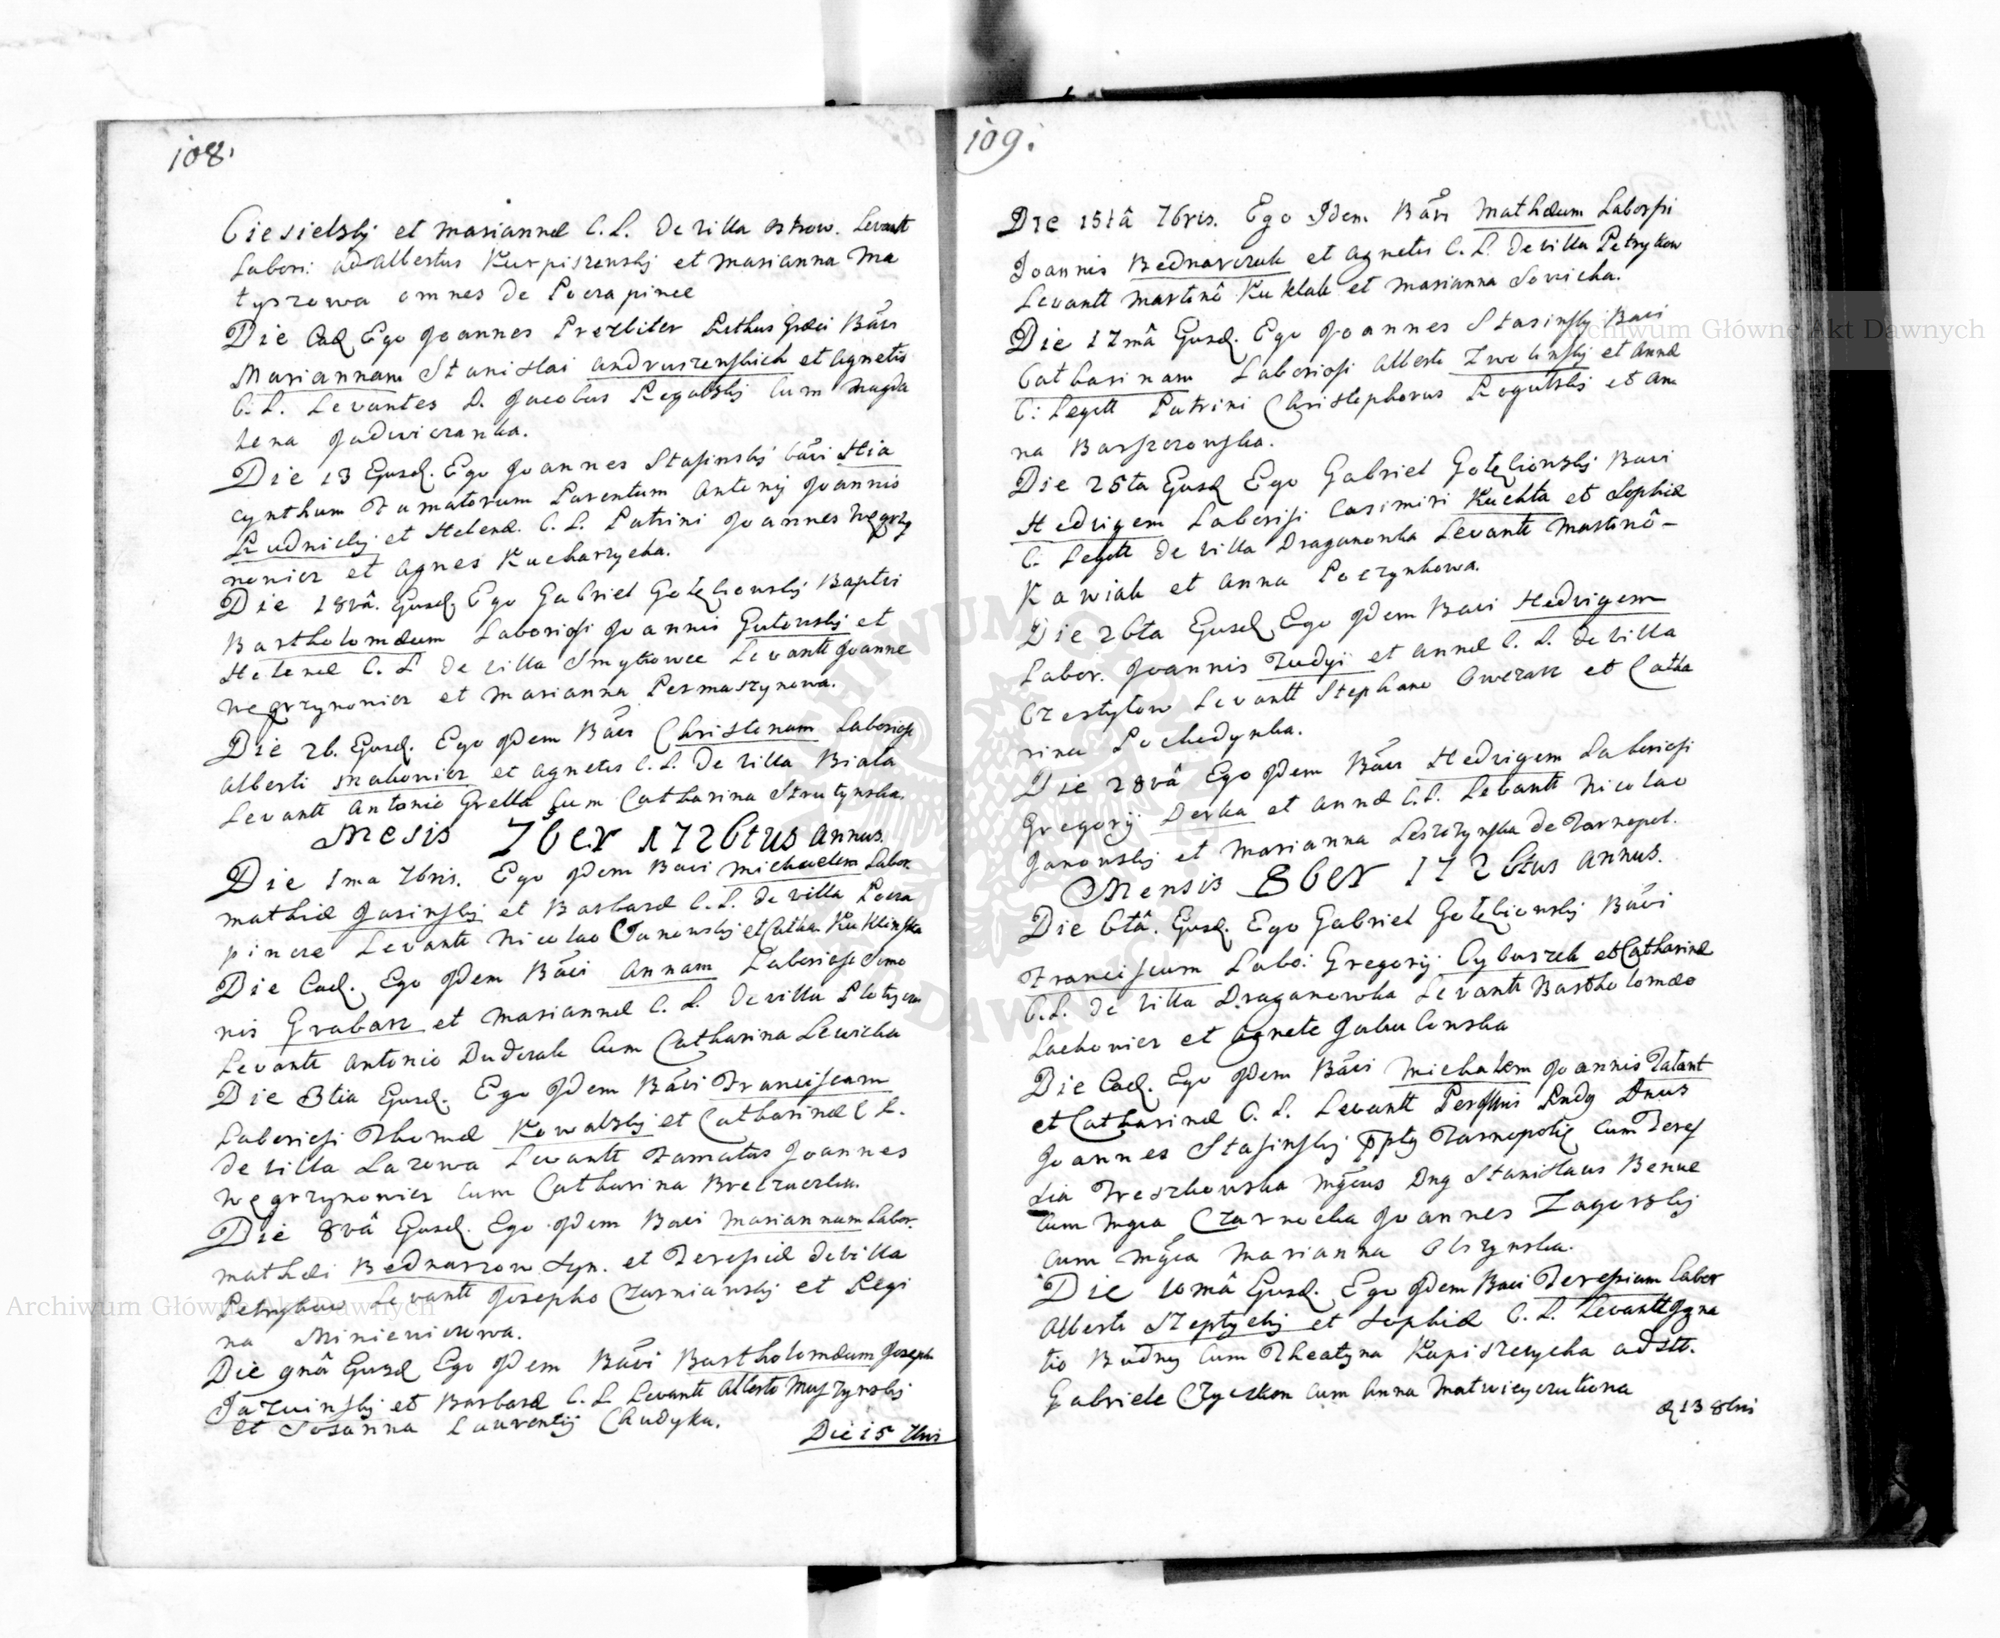 108.
Ciesielskj et Mariannæ C. L. De villa ostrow. Levantt
Labori: ad Albertus Kurpiszenskj et Marianna Ma
tyszowa omnes de Poczapince
Die Ead Ego Joannes Prezbiter Rithus Græci Bãvi
Mariannam Stanislai Andruszenskich et Agnetis
C. L. Levantes D. Jacobus Rogalskj cum Magda
lena Jadwiczanka.
Die 13 Ejusd. Ego Joannes Stasinskj bãvi Hia
cynthum Famatorum Parentum Antonij Joannis
Rudnickj et Helenæ. C. L. Patrini Joannes Węgrzy
nowicz et Agnes Kucharzycka.
Die 18vâ. Ejusd. Ego Gabriel Gołębiowskj Baptvi
Bartholomæum Laboriosi Joannis Gutowskj et
Helenæ C. L. De villa Smykowce Levantt Joanne
Węgrzynowicz et Marianna Permaszynowa.
Die 26. Ejusd. Ego Idem Bãvi Christonam Laboriosi
Alberti Makowicz et Agnetis C. L. De villa Biała
Levantt Antonio Grella Cum Catharina Strutynska.
Mesis 7ber 1726tus Annus.
Die 1ma 7bris. Ego Idem Bavi Michaelem Labor.
Mathiæ Jasinskj et Barbaræ C. L. De villa Pocza
pincze Levantt Nicolao Janowskj et Catha. Kuklinska
Die Ead. Ego Idem Bãvi Annam Laboriosi Simo
nis Grabarz et Mariannæ C. L. De villa Plotycza
Levantt Antonio Duderak Cum Catharina Lewicka
Die 3tia Ejusd. Ego Idem Bãvi Franciscam
Laboriosi Thomæ Kowalskj et Catharinæ C. L.
De villa Lozowa Levantt Famatus Joannes
Węgrzynowicz cum Catharina Breczuczka.
Die 8vâ Ejusd. Ego Idem Bavi Mariannam Labor.
Mathæi Bednarzow Syn. et Teresiæ de villa
Petrykow Levantt Josepho Czarnianskj et Regi
na Miniewiczowa.
Die 9nâ Ejusd Ego Idem Bãvi Bartholomæum Joseph
Jazwinskj et Barbaræ C. L. Levantt Alberto Muszynskj
et Sosanna Laurentij Chudyka.
Die 15 7bris
109.
Die 15tâ 7bris. Ego Idem Bãvi Mathæum Laborsi
Joannis Bednarczuk et Agnetis C. L. De villa Petrykow
Levantt Martinô Kuklak et Marianna Sowicka.
Die 17mâ Ejusd. Ego Joannes Stasinskj Bavi
Catharinam Laboriosi Alberti Zwolinskj et Annæ
C: Legitt Patrini Christophorus Rogulskj et An
na Barszczowska.
Die 25ta Ejusd Ego Gabriel Gołębiowskj Bavi
Hedvigem Laboriosi Casimiri Kuchta et Sophiæ
C. Legitt De villa Draganowka Levantt Martinô-
Kawiak et Anna Poczynkowa.
Die 26ta Ejusd Ego Idem Bavi Hedvigem
Labor. Joannis Rudyi et Annæ C. L. De villa
Czestyłow Levantt Stephano Owczarz et Catha
rina Lochedynka.
Die 28vâ Ego Idem Bãvi Hedvigem Laboriosi
Gregorij Derka et Annæ C. L. Levantt Nicolao
Janowskj et Marianna Leszczynska de Tarnopol.
Mensis 8ber 1726tus Annus.
Die 6tâ. Ejusd. Ego Gabriel Gołębiowskj Bãvi
Franciscum Labo: Gregorij Cybaszek et Catharinæ
C. L. De villa Draganowka Levantt Bartholomæo
Lachowicz et Agnete Jabulonska
Die Ead. Ego Idem Bãvi Michalem Joannis Talant
et Catharinæ C. L. Levantt Perillris Rndg Dnus
Joannes Stasinskj Tarnopolig Cum Teres
sia Treszkowska Mgcus Dng Stanislaus Benue
Cum Mgca Czarnocka Joannes Zagorskj
Cum Mgca Marianna Olszynska.
Die 10mâ Ejusd. Ego Idem Bavi Teresiam Labor
Alberti Szeptyckj et Sophiæ C. L. Levantt Igna
tio Budny Cum Theatyna Kopiszczycka adstt.
Gabriele Czyczkon cum Anna Matwieyczukowa
D 13 8bris
Archiwum Główne Akt Dawnych
Archiwum Główne Akt Dawnych
ARCHIWUM GŁÓWNE AKT DAWNYCH